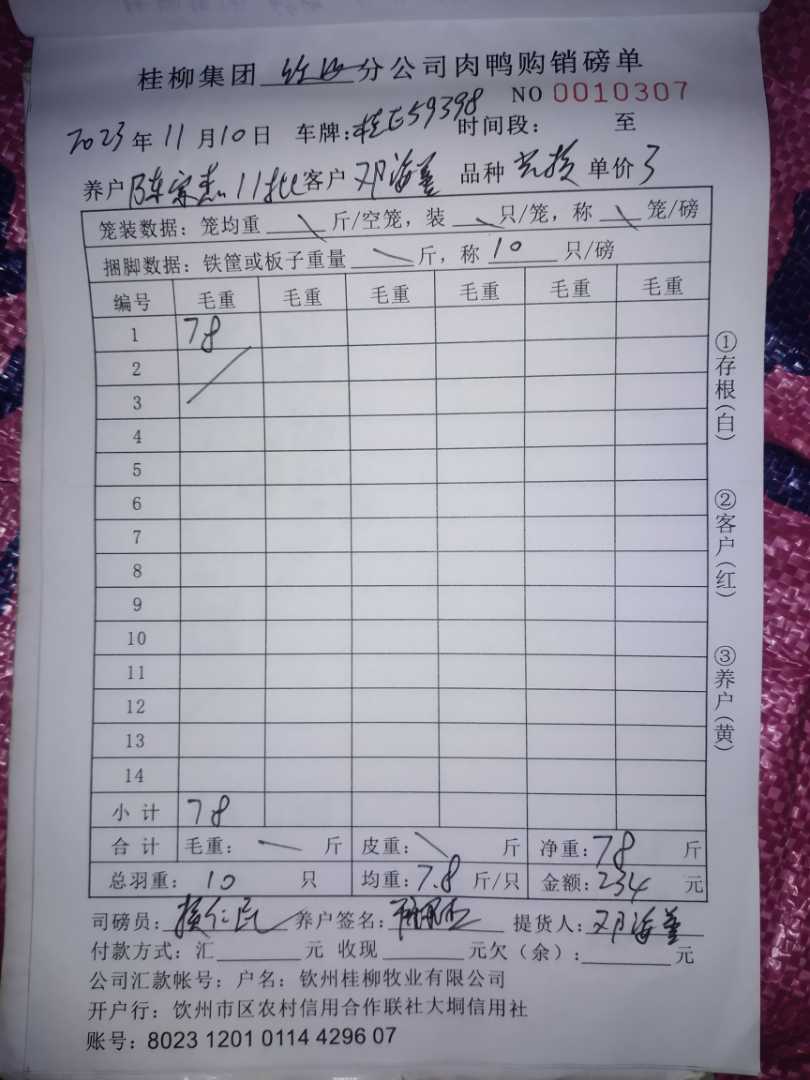 桂柳集团 分公司肉鸭购销磅单
NO 0010307
2023年11月10日 车牌:桂E59398 时间段: 至
养户 陈家杰11批 客户 邓海 品种 单价 3
笼装数据:笼均重 \ 斤/空笼,装 \ 只/笼,称 \ 笼/磅
捆脚数据:铁筐或板子重量 \ 斤,称 10 只/磅
编号 毛重 毛重 毛重 毛重 毛重 毛重
1 78
2
3
4
5
6
7
8
9
10
11
12
13
14
小计 78
合计 毛重: — 斤 皮重: \ 斤 净重:78 斤
总羽重: 10 只 均重:7.8 斤/只 金额:234 元
司磅员: 仁民 养户签名: 提货人:邓海
付款方式:汇 元 收现 元欠(余): 元
公司汇款帐号:户名:钦州桂柳牧业有限公司
开户行:饮州市区农村信用合作联社大垌信用社
账号:8023 1201 0114 4296 07
①存根(白)
②客户(红)
③养户(黄)